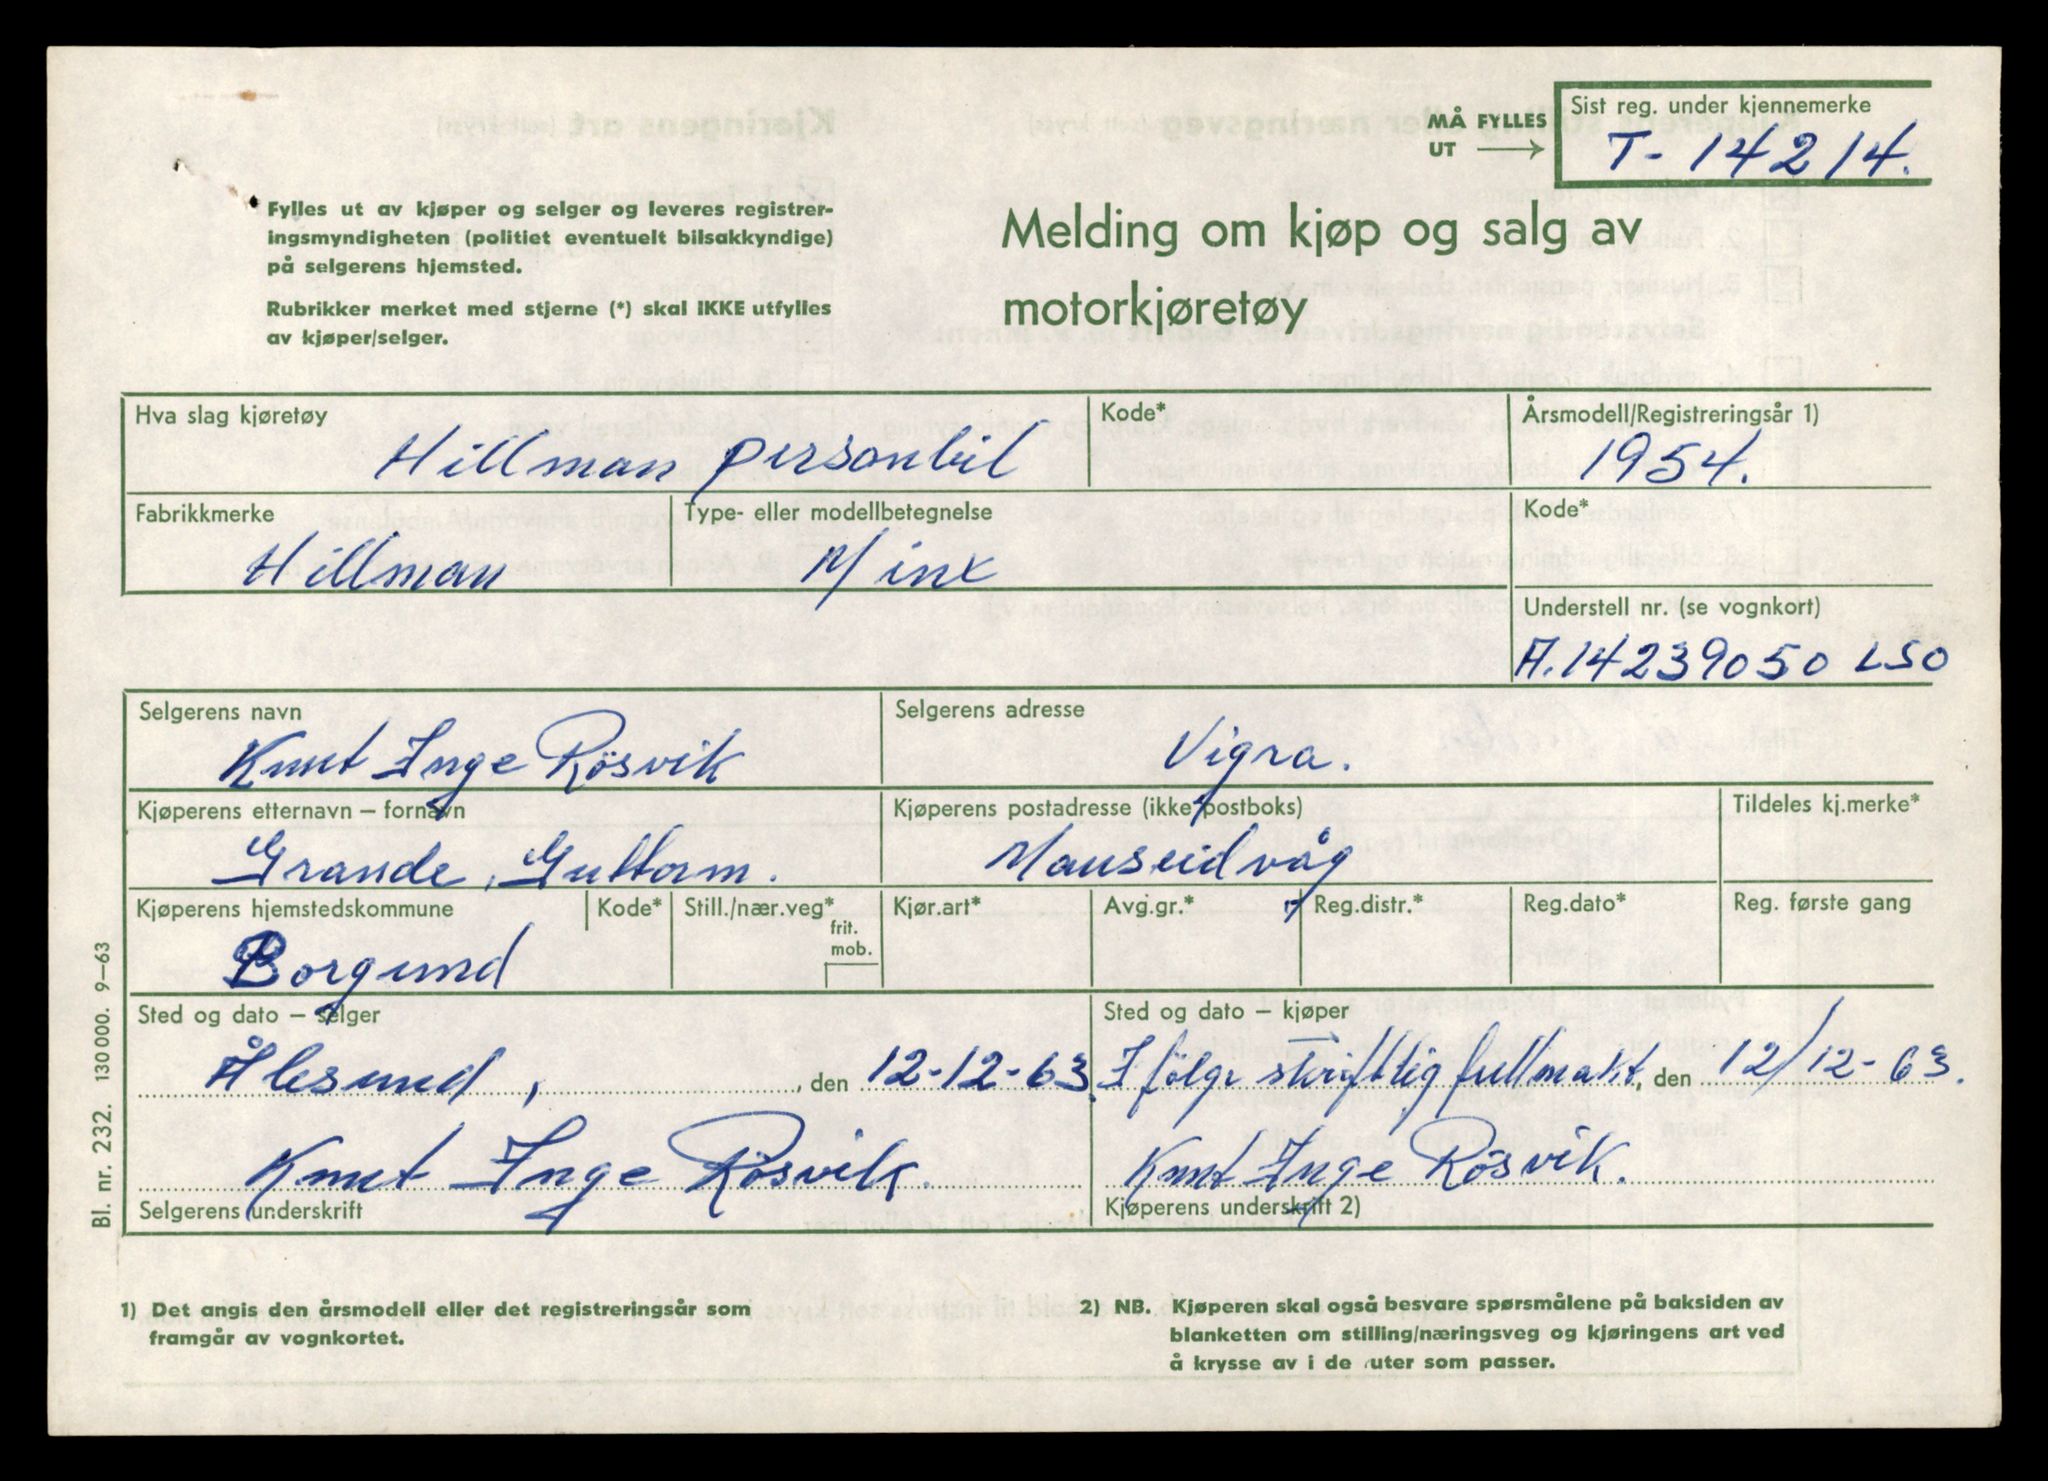 MÅ FYLLES
UT
Sist reg. under kjennemerke
T- 14214.
Fylles ut av kjøper og selger og leveres registrer-
ingsmyndigheten (politiet eventuelt bilsakkyndige)
på selgerens hjemsted.
Rubrikker merket med stjerne (*) skal IKKE utfylles
av kjøper/selger.
Melding om kjøp og salg av
motorkjøretøy
Hva slag kjøretøy
Hillman personbil
Kode*
Årsmodell/Registreringsår 1)
1954.
Fabrikkmerke
Hillman
Type- eller modellbetegnelse
Minx
Kode*
Understell nr. (se vognkort)
A.14239050 LSO
Selgerens navn
Knut Inge Rösvik
Selgerens adresse
Vigra.
Kjøperens etternavn – fornavn
Grande, Guttorm.
Kjøperens postadresse (ikke postboks)
Mauseidvåg
Tildeles kj.merke*
Kjøperens hjemstedskommune
Borgund
Kode*
Still./nær.veg*
frit.
mob.
Kjør.art*
Avg.gr.*
Reg.distr.*
Reg.dato*
Reg. første gang
Sted og dato – selger
Ålesund, , den 12-12-63.
Sted og dato – kjøper
Ifölge skriftlig fullmakt, den 12/12-63.
Knut Inge Rösvik.
Selgerens underskrift
Knut Inge Rösvik.
Kjøperens underskrift 2)
Bl. nr. 232. 130 000. 9–63
1) Det angis den årsmodell eller det registreringsår som
framgår av vognkortet.
2) NB. Kjøperen skal også besvare spørsmålene på baksiden av
blanketten om stilling/næringsveg og kjøringens art ved
å krysse av i de ruter som passer.